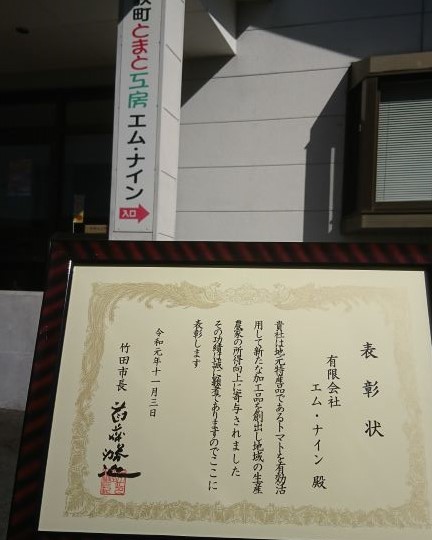 町とまと工房 エム・ナイン
入口
表彰状
有限会社
エム・ナイン 殿
貴社は地元特産品であるトマトを有効活
用して新たな加工品を創出し地域の生産
農家の所得向上に寄与されました
その功績は誠に顕著でありますのでここに
表彰します
令和元年十一月三日
竹田市長